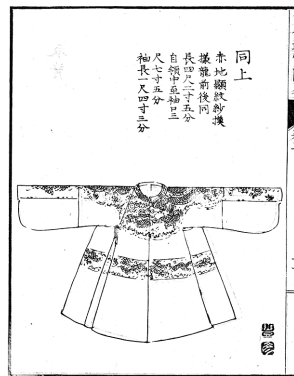 同上
赤地顯紋紗撲
攘龍前後同
長四尺二寸五分
自領中至袖口三
尺七寸五分
袖長一尺四寸三分